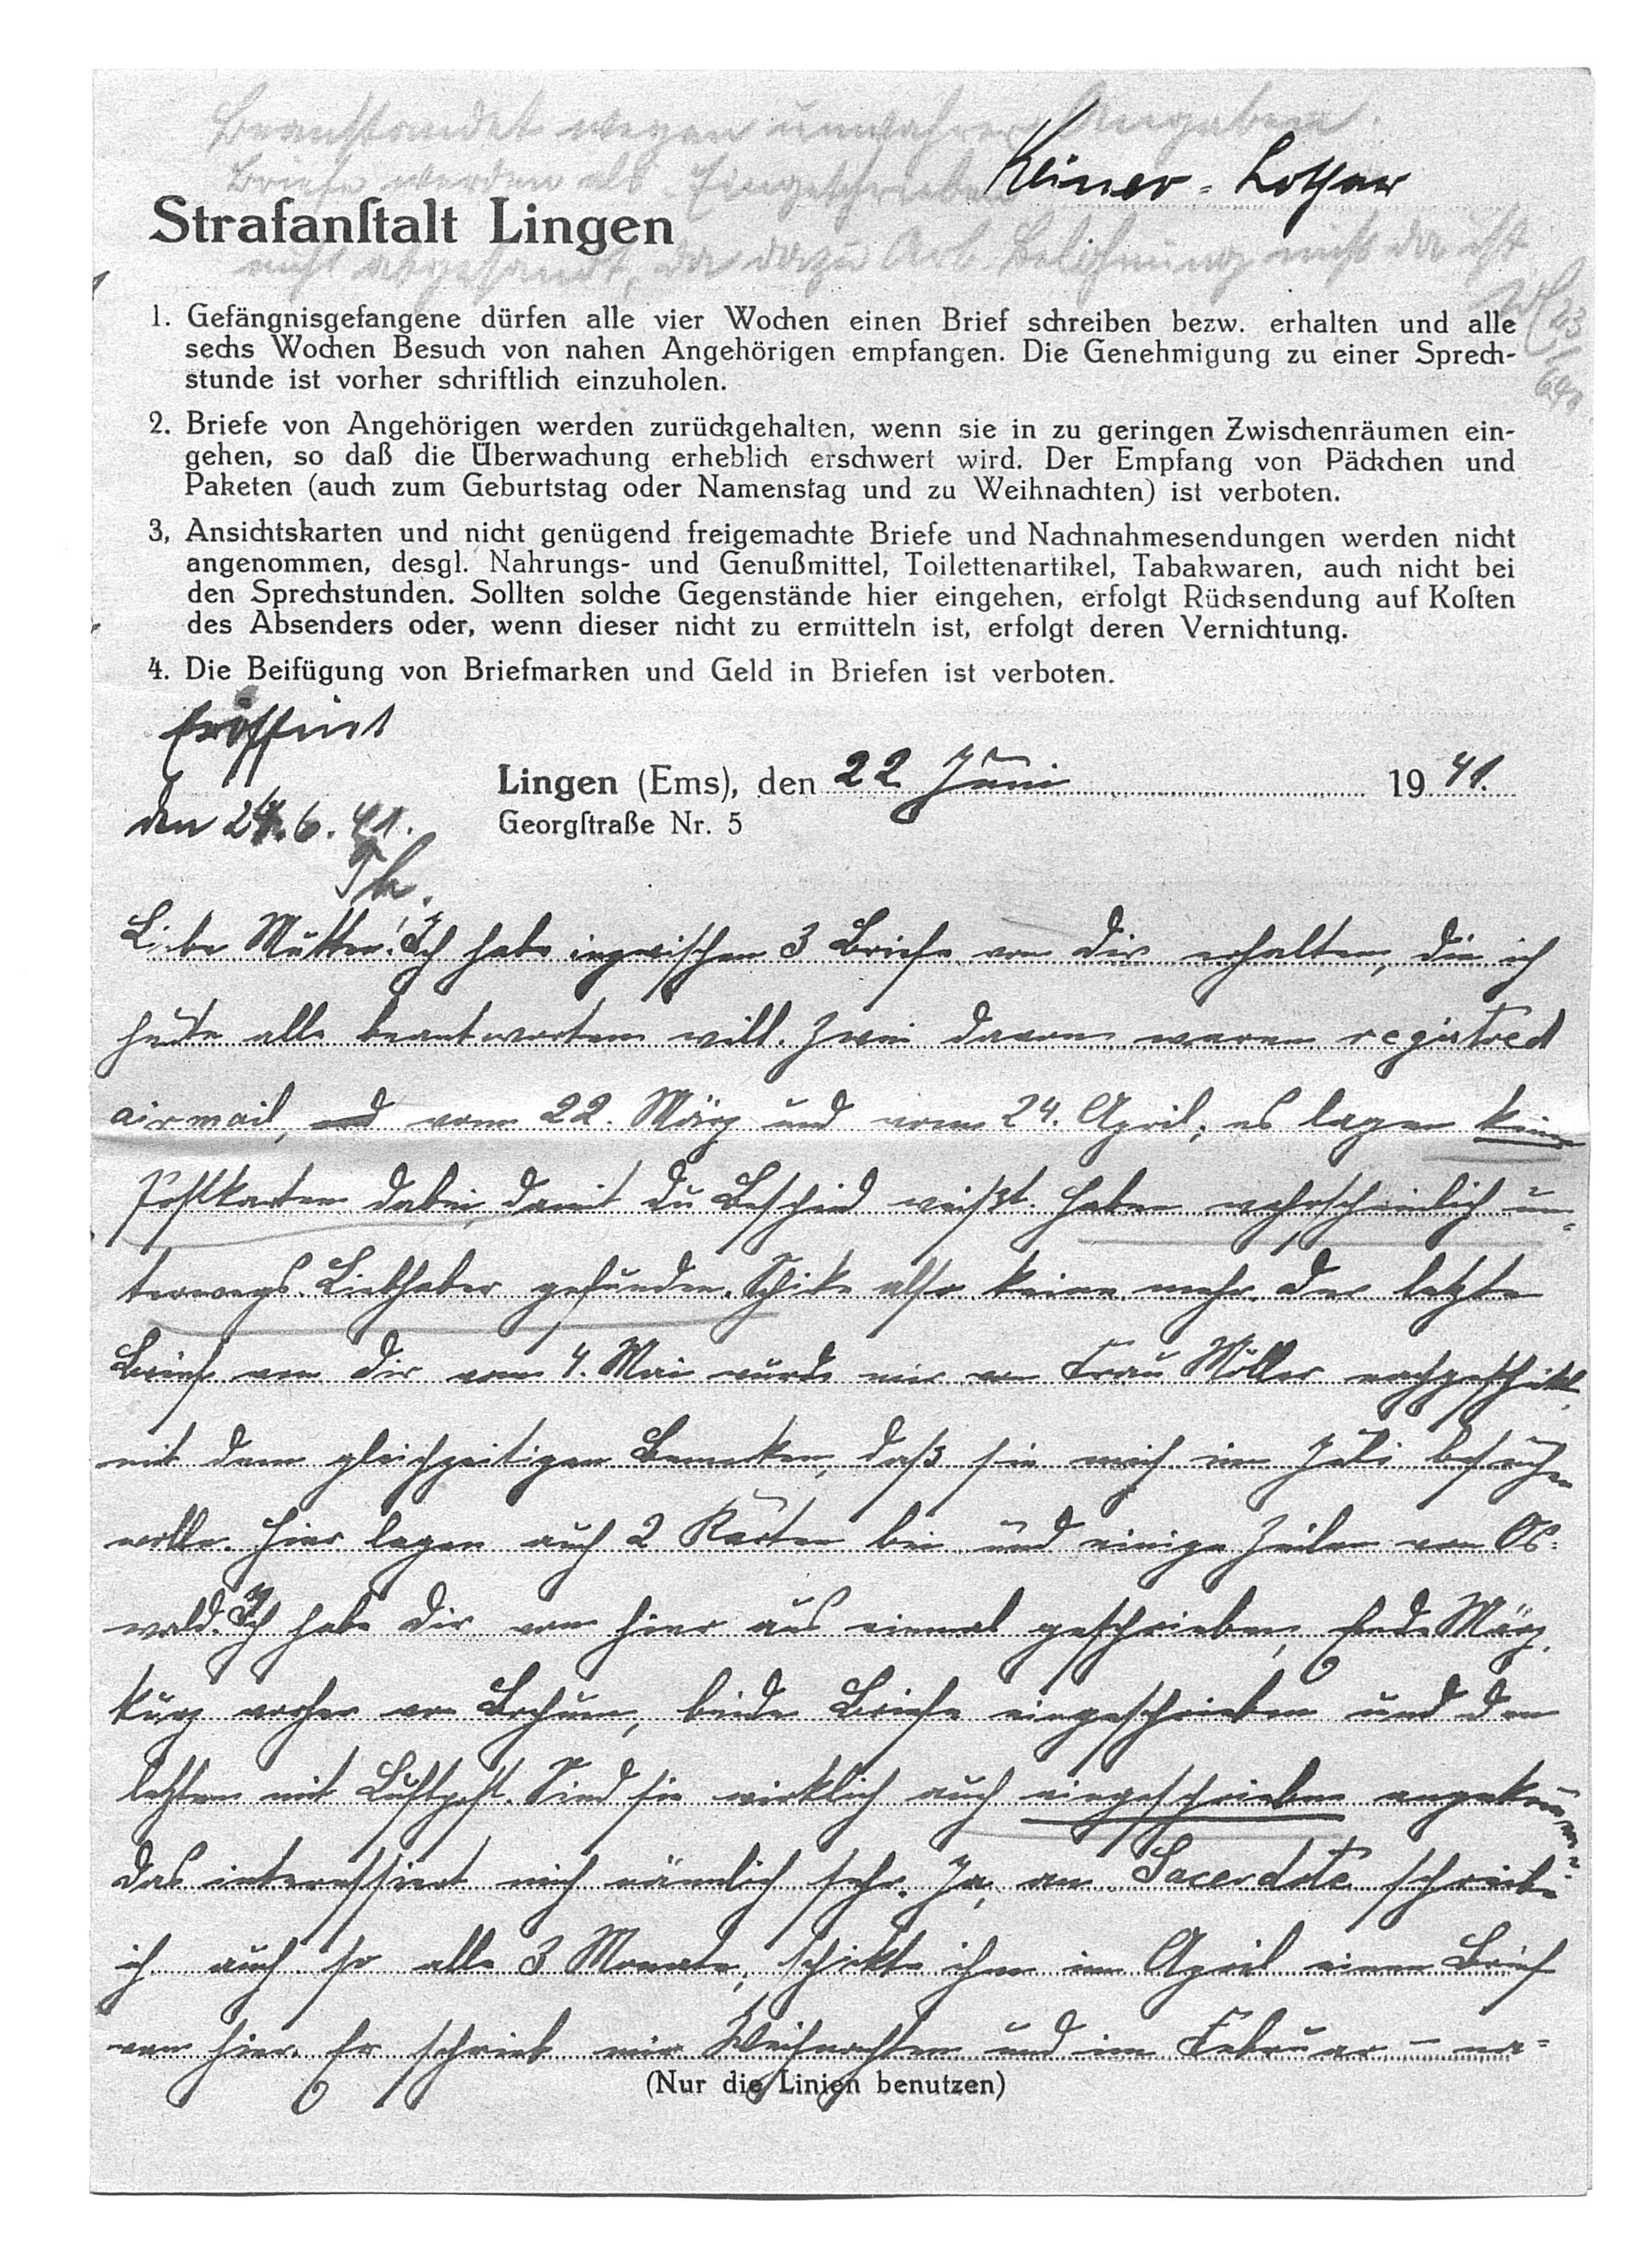 Beanstandet wegen unwahrer Angaben.
Briefe werden als Eingeschrieben
Keiner - Lothar
Strafanſtalt Lingen
nicht abgesandt, da dazu Arb. Belohnung nicht da ist
23/6
1. Gefängnisgefangene dürfen alle vier Wochen einen Brief schreiben bezw. erhalten und alle
sechs Wochen Besuch von nahen Angehörigen empfangen. Die Genehmigung zu einer Sprech-
stunde ist vorher schriftlich einzuholen.
2. Briefe von Angehörigen werden zurückgehalten, wenn sie in zu geringen Zwischenräumen ein-
gehen, so daß die Überwachung erheblich erschwert wird. Der Empfang von Päckchen und
Paketen (auch zum Geburtstag oder Namenstag und zu Weihnachten) ist verboten.
3, Ansichtskarten und nicht genügend freigemachte Briefe und Nachnahmesendungen werden nicht
angenommen, desgl. Nahrungs- und Genußmittel, Toilettenartikel, Tabakwaren, auch nicht bei
den Sprechstunden. Sollten solche Gegenstände hier eingehen, erfolgt Rücksendung auf Koſten
des Absenders oder, wenn dieser nicht zu ermitteln ist, erfolgt deren Vernichtung.
4. Die Beifügung von Briefmarken und Geld in Briefen ist verboten.
Eröffnet
den 24.6.41.
Lingen (Ems), den 22 Juni 1941.
Georgſtraße Nr. 5
Liebe Mutter! Ich habe inzwischen 3 Briefe von dir erhalten, die ich
heute alle beantworten will. Zwei davon waren registred
airmail, vom 22. März und vom 24. April; es lagen keine
Postkarten dabei, damit du Bescheid weißt. Haben wahrscheinlich un-
terwegs Liebhaber gefunden. Schicke also keine mehr. Der letzte
Brief von dir vom 4. Mai wurde mir von Frau Möller nachgeschickt,
mit dem gleichzeitigen Bemerken, daß sie mich im Juli besuchen
wolle. Hier lagen auch 2 Karten bei und einige Zeilen von Os-
wald. Ich habe dir von hier aus einmal geschrieben, Ende März,
kurz vorher von Bochum, beide Briefe eingeschrieben und den
letzten mit Luftpost. Sind sie wirklich auch eingeschrieben angekommen?
das interessiert mich nämlich sehr. Ja, an Sacerdote schreibe
ich auch so alle 3 Monate, schickte ihm im April einen Brief
von hier. Er schrieb mir Weihnachten und im Februar – na-
(Nur die Linien benutzen)